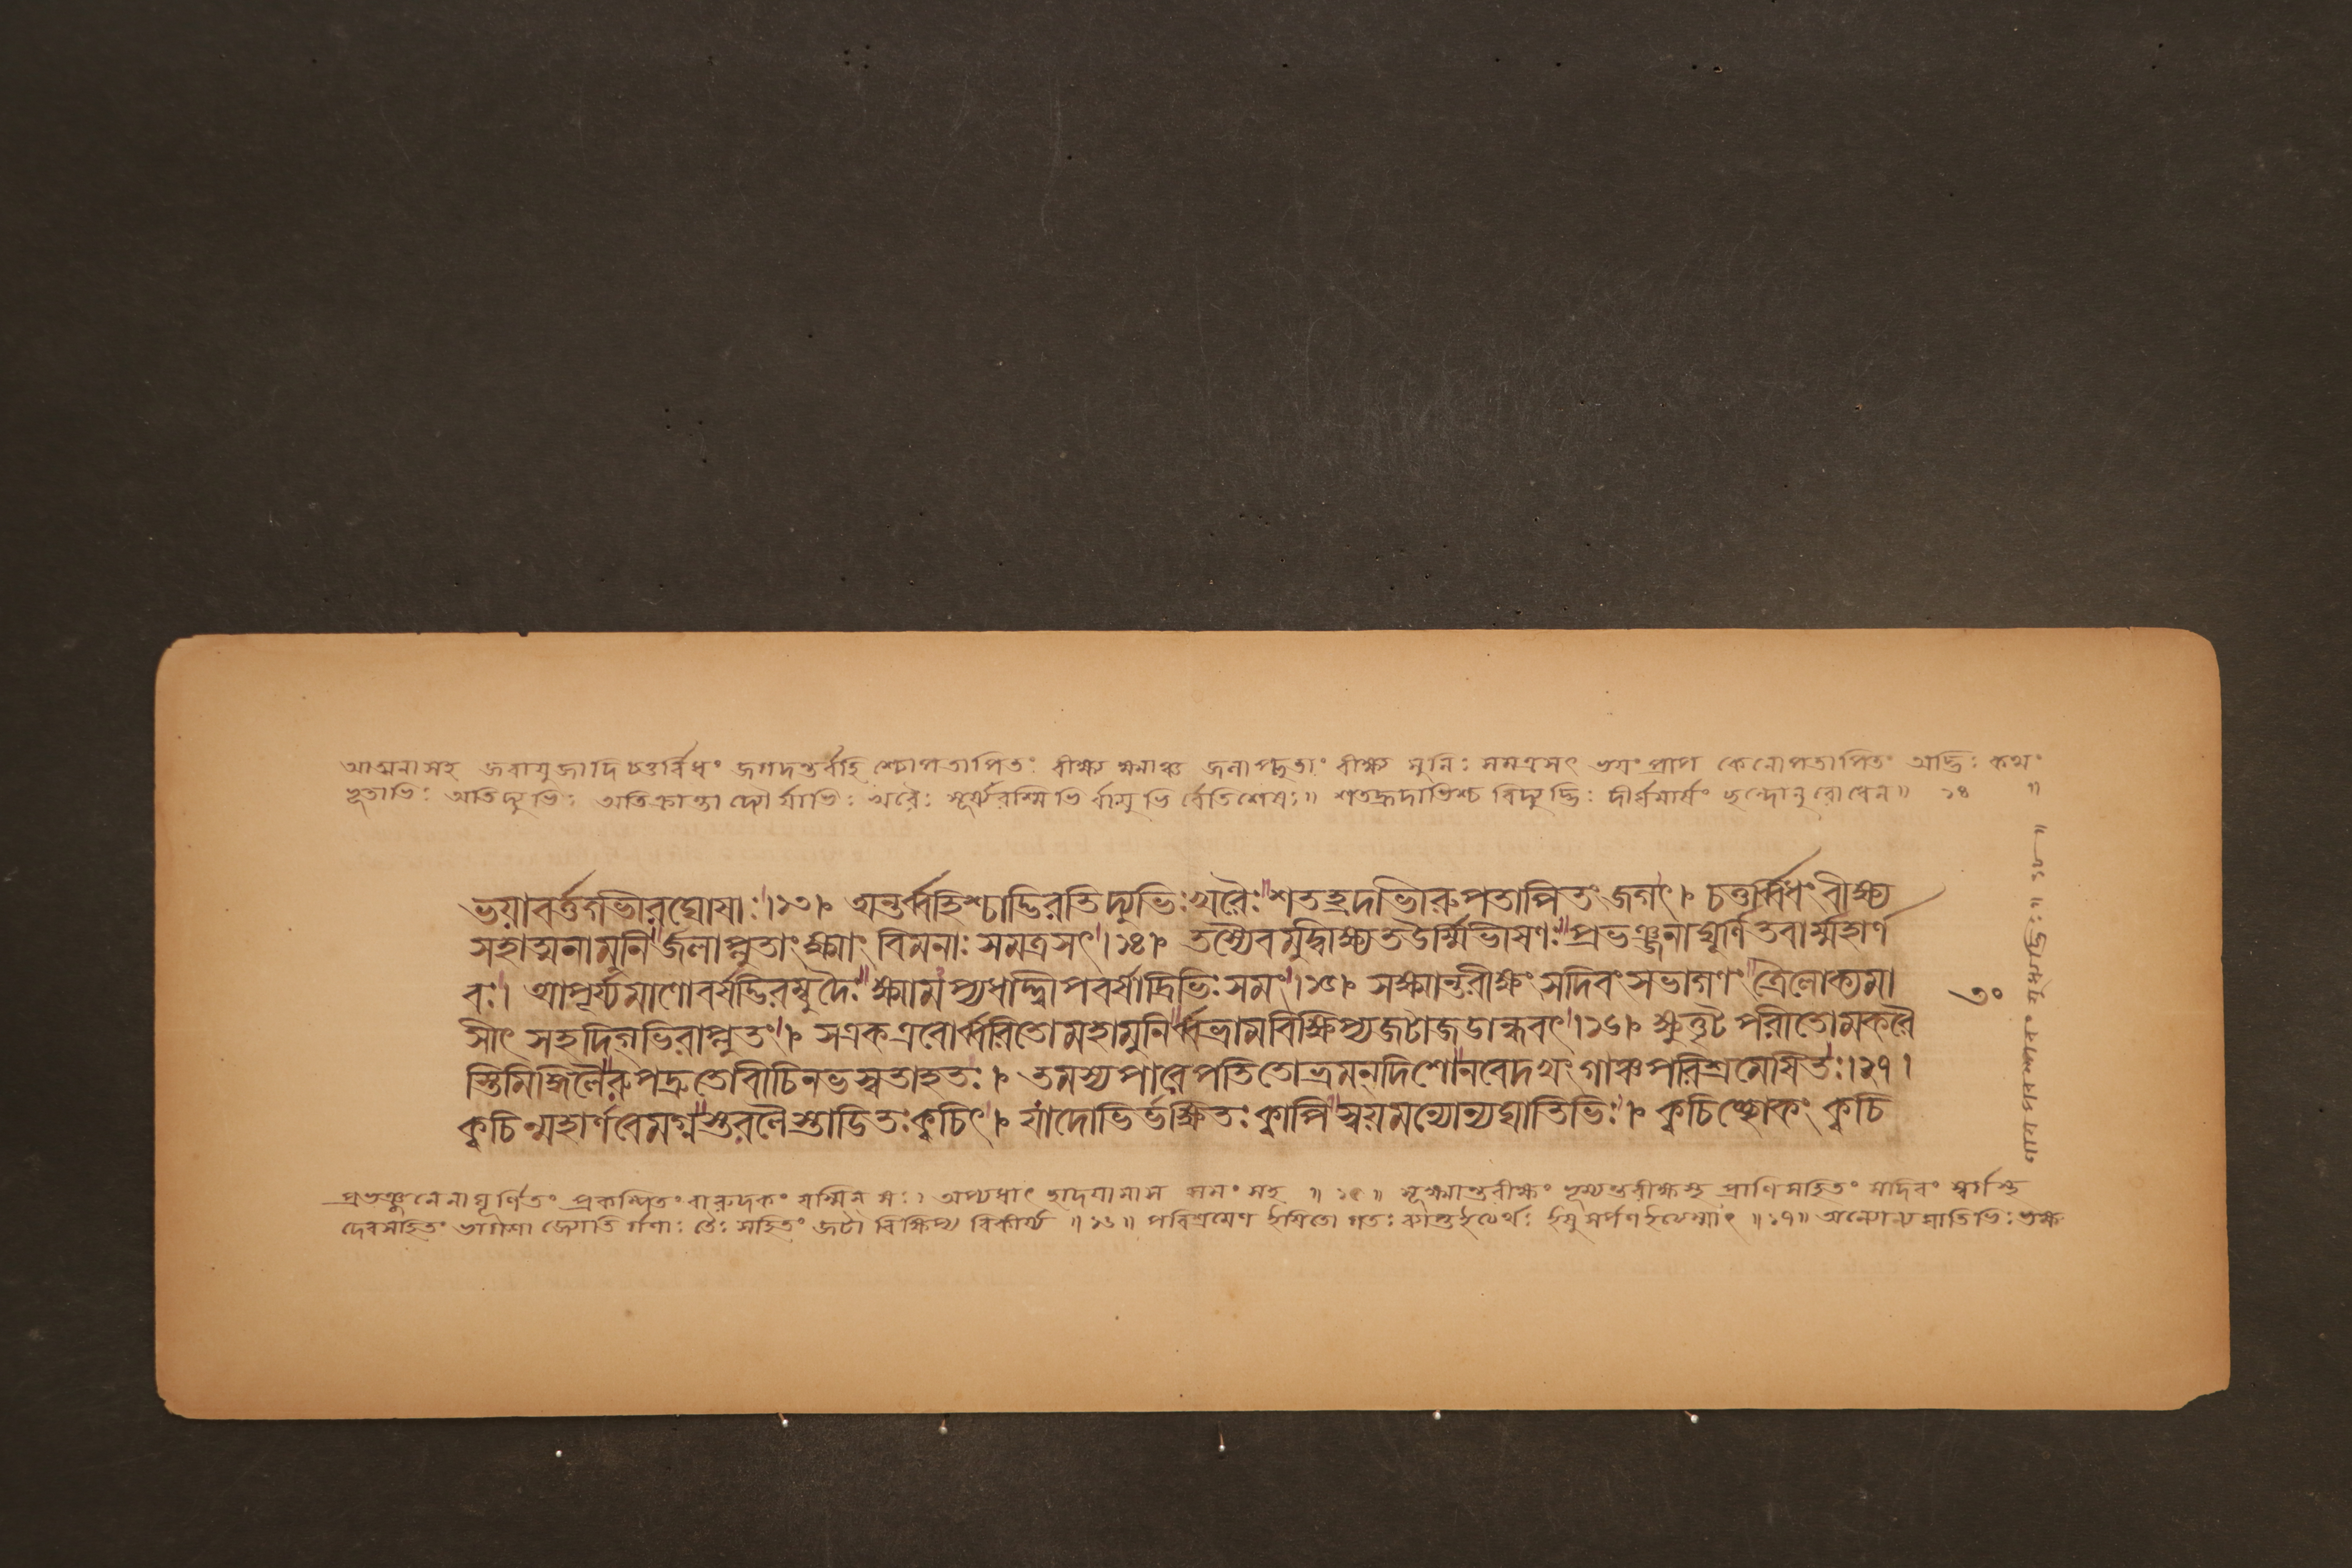 আত্মনাসহ জরাযুজাদি চতুর্বিধং জগদন্তর্বহিশ্চোপতাপিতং বীক্ষ্য ক্ষ্মাঞ্চ জলাপ্লুতাং বীক্ষ্য মুনিঃ সমত্রসৎ ভয়ংপ্রাপ কেনোপতাপিতং অদ্ভিঃ কথং
ভূতাভিঃ অতিদ্যুভিঃ অতিক্রান্তা দ্যৌর্যাভিঃ খরৈঃ সূর্য্যরশ্মিভি র্বায়ুভি র্বেতিশেষঃ॥ শতহ্রদাভিশ্চ বিদ্যুদ্ভিঃ দীর্ঘমার্ষং ছন্দোনুরোধেন॥ ১৪ ॥
ভয়াবর্ত্তগভীরঘোষাঃ।১৩। অন্তর্ব্বহিশ্চাদ্ভিরতিদ্যুভিঃখরৈঃ শতহ্রদাভীরুপতাপিতং জগৎ। চতুর্ব্বিধং বীক্ষ্য
সহাত্মনামুনি র্জলাপ্লুতাং ক্ষ্মাং বিমনাঃ সমত্রসৎ।১৪। তস্যৈবমুদ্বীক্ষ্যতঊর্ম্মিভীষণঃ প্রভঞ্জনাঘূর্ণিতবার্ম্মহার্ণ
বঃ। আপূর্য্যমাণোবর্ষদ্ভিরম্বুদৈঃ ক্ষ্মামপ্যধাদ্দ্বীপবর্ষাদ্রিভিঃসমং।১৫। সক্ষ্মান্তরীক্ষং সদিবংসভাগণং ত্রৈলোক্যমা
সীৎ সহদিগভিরাপ্লুতং। সএকএবোর্ব্বরিতোমহামুনি র্ব্বভ্রামবিক্ষিপ্যজটাজডান্ধবৎ।১৬। ক্ষুত্তৃট পরীতোমকরৈ
স্তিমিঙ্গিলৈরুপদ্রুতোবীচিনভস্বতাহতঃ। তমস্যপারেপতিতোভ্রমন্দিশোনবেদখং গাঞ্চপরিশ্রমেষিতঃ।১৭।
ক্বচিন্মহার্ণবেমগ্নস্তরলৈস্তাডিতঃক্বচিৎ। যাদোভির্ভক্ষিতঃক্বাপি স্বয়মন্যোন্যঘাতিভিঃ। ক্বচিচ্ছোকং ক্বচি
৩০
প্রভঞ্জনেনাঘূর্ণিতং প্রকম্পিতং বারুদকং যস্মিন্ সঃ। অপ্যধাৎ সমং সহ ॥১৫॥ প্রাণিসহিতং সদিবং স্বর্গস্থ
দেবসহিতং জ্যোতির্গণাঃ তৈঃ সহিতং জটা বিক্ষিপ্য বিকীর্য্য ॥১৬॥ পরিশ্রমেণ ইষিতো গতঃ ইত্যর্থঃ ॥১৭॥ অন্যোন্যঘাতিভিঃ ভক্ষ